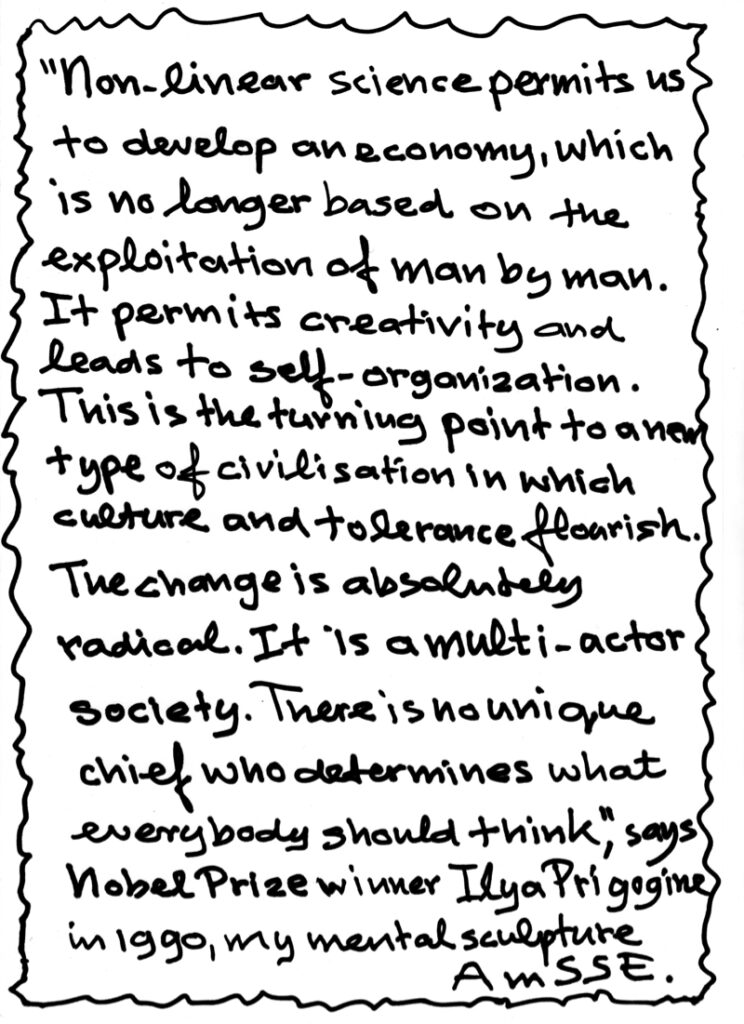 "Non-linear science permits us
to develop an economy, which
is no longer based on the
exploitation of man by man.
It permits creativity and
leads to self-organization.
This is the turning point to a new
type of civilisation in which
culture and tolerance flourish.
The change is absolutely
radical. It is a multi-actor
society. There is no unique
chief who determines what
everybody should think", says
Nobel Prize winner Ilya Prigogine
in 1990, my mental sculpture
AmSSE.